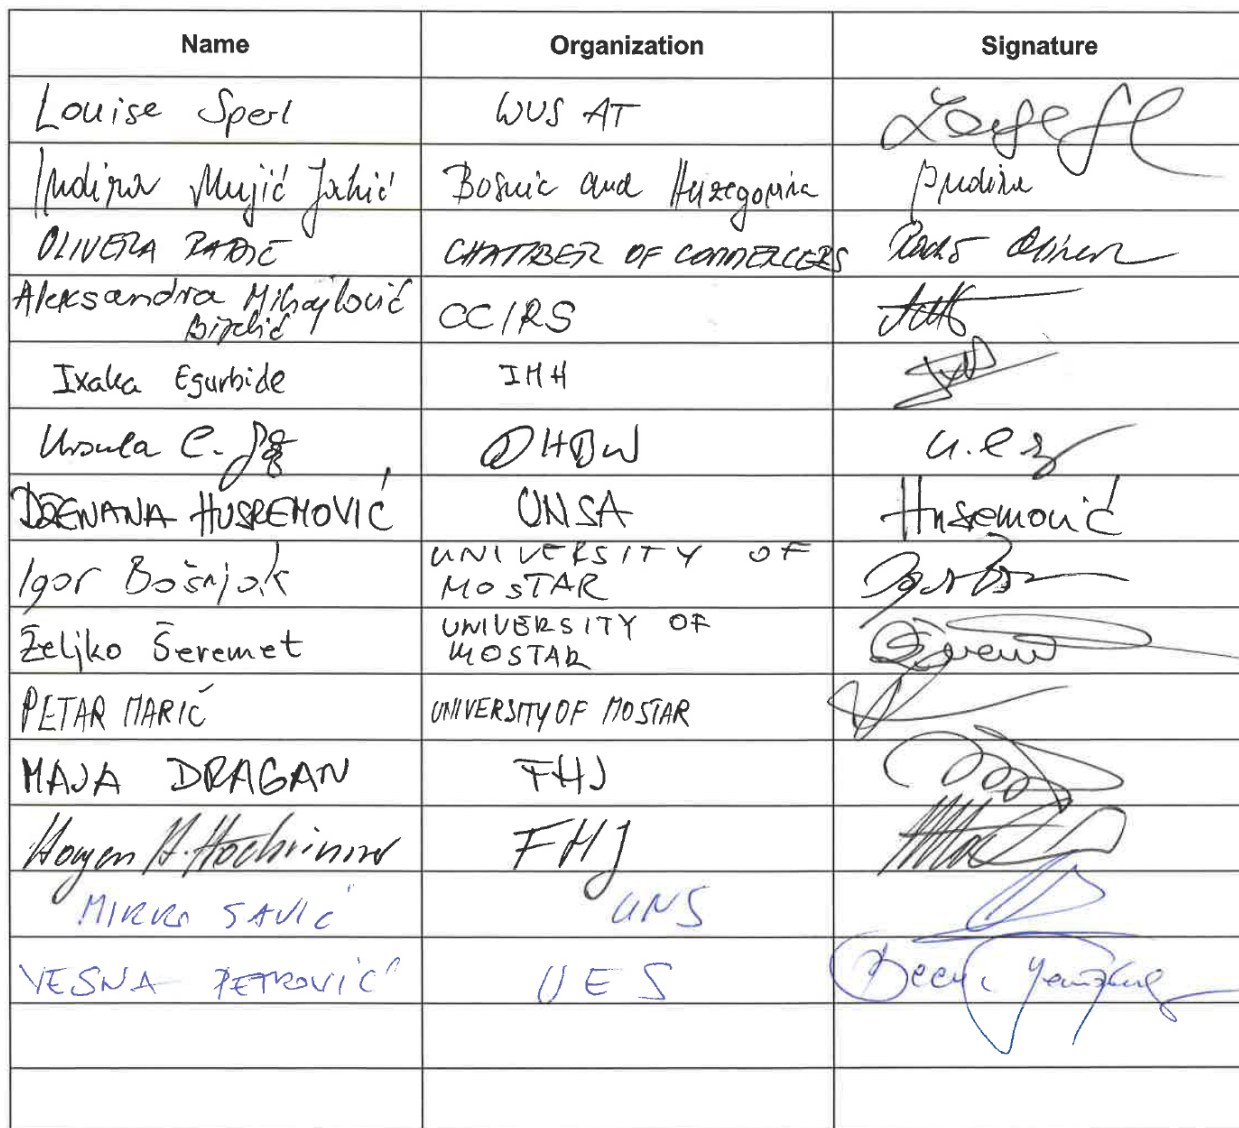 Name Organization Signature
Louise Sperl WUS AT
Indira Mujić Jahić Bosnia and Herzegovina Indira
OLIVERA RADIĆ CHAMBER OF COMMERCERS
Aleksandra Mihajlović
Bijelić CC/RS
Ixaka Egurbide IMH
Ursula C. DHBW
DŽENANA HUSREMOVIĆ UNSA Husremović
Igor Bošnjak UNIVERSITY OF
MOSTAR
Željko Šeremet UNIVERSITY OF
MOSTAR
PETAR MARIĆ UNIVERSITY OF MOSTAR
MAJA DRAGAN FHJ
Hagen H. Hochrinner FHJ
MIRKO SAVIĆ UNS
VESNA PETROVIĆ UES